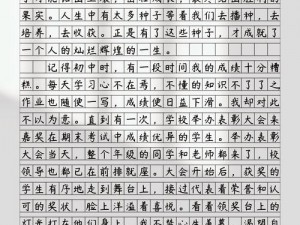 果。人生中有太多种子等着我们去播种，去
培养，去收获。正是有了这些种子，才成就了
一个人的灿烂辉煌的一生。
记得初中时，有一段时间我的成绩十分糟
糕。每天学习心不在焉，不懂的问题不了了之
作业也随便一写，成绩便日益下滑。我却对此
不以为意。直到有一次，学校举办表彰大会来
嘉奖在期末考试中成绩优异的学生。举办表彰
大会当天，整个年级的同学和老师都来了，校
领导也都已在前排就座。大会开始后，获奖的
学生有序地走到舞台上，接过代表着荣誉和认
可的奖状，脸上洋溢着喜悦。看着舞台上的